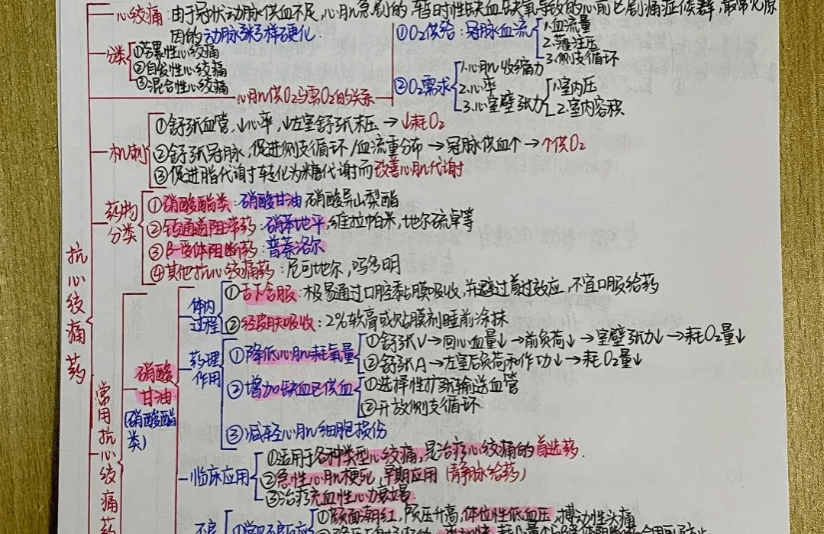 心绞痛：由于冠状动脉供血不足，心肌急剧的、暂时性缺血缺氧导致的心前区剧痛症候群，最常见原
因的动脉粥样硬化.
分类
①劳累性心绞痛
②自发性心绞痛
③混合性心绞痛
心肌供O2与需O2的关系
①O2供给：冠脉血流
1.血流量
2.灌注压
3.侧支循环
②O2需求
1.心肌收缩力
2.心率
3.心室壁张力
1.室内压
2.室内容积
机制
①舒张血管，↓心率，↓左室舒张末压→↓耗O2
②舒张冠脉，促进侧支循环/血流重分布→冠脉供血↑→↑供O2
③促进脂代谢转化为糖代谢而改善心肌代谢
药物分类
①硝酸酯类：硝酸甘油，硝酸异山梨酯
②钙通道阻滞药：硝苯地平，维拉帕米，地尔硫卓等
③β受体阻断药：普萘洛尔
④其他抗心绞痛药：尼可地尔，吗多明
抗心绞痛药
常用抗心绞痛药
硝酸甘油
(硝酸酯类)
体内过程
①舌下含服：极易通过口腔黏膜吸收，并避过首过效应，不宜口服给药
②经皮肤吸收：2%软膏或贴膜剂睡前涂抹
药理作用
①降低心肌耗氧量
①舒张V→回心血量↓→前负荷↓→室壁张力↓→耗O2量↓
②舒张A→左室后负荷和作功↓→耗O2量↓
②增加缺血区供血
①选择性扩张输送血管
②开放侧支循环
③减轻心肌细胞损伤
临床应用
①适用于各种类型心绞痛，是治疗心绞痛的首选药.
②急性心肌梗死，早期应用(静脉给药)
③治疗充血性心力衰竭
不良
①常见不良反应
①颜面潮红，眼压升高，体位性低血压，搏动性头痛